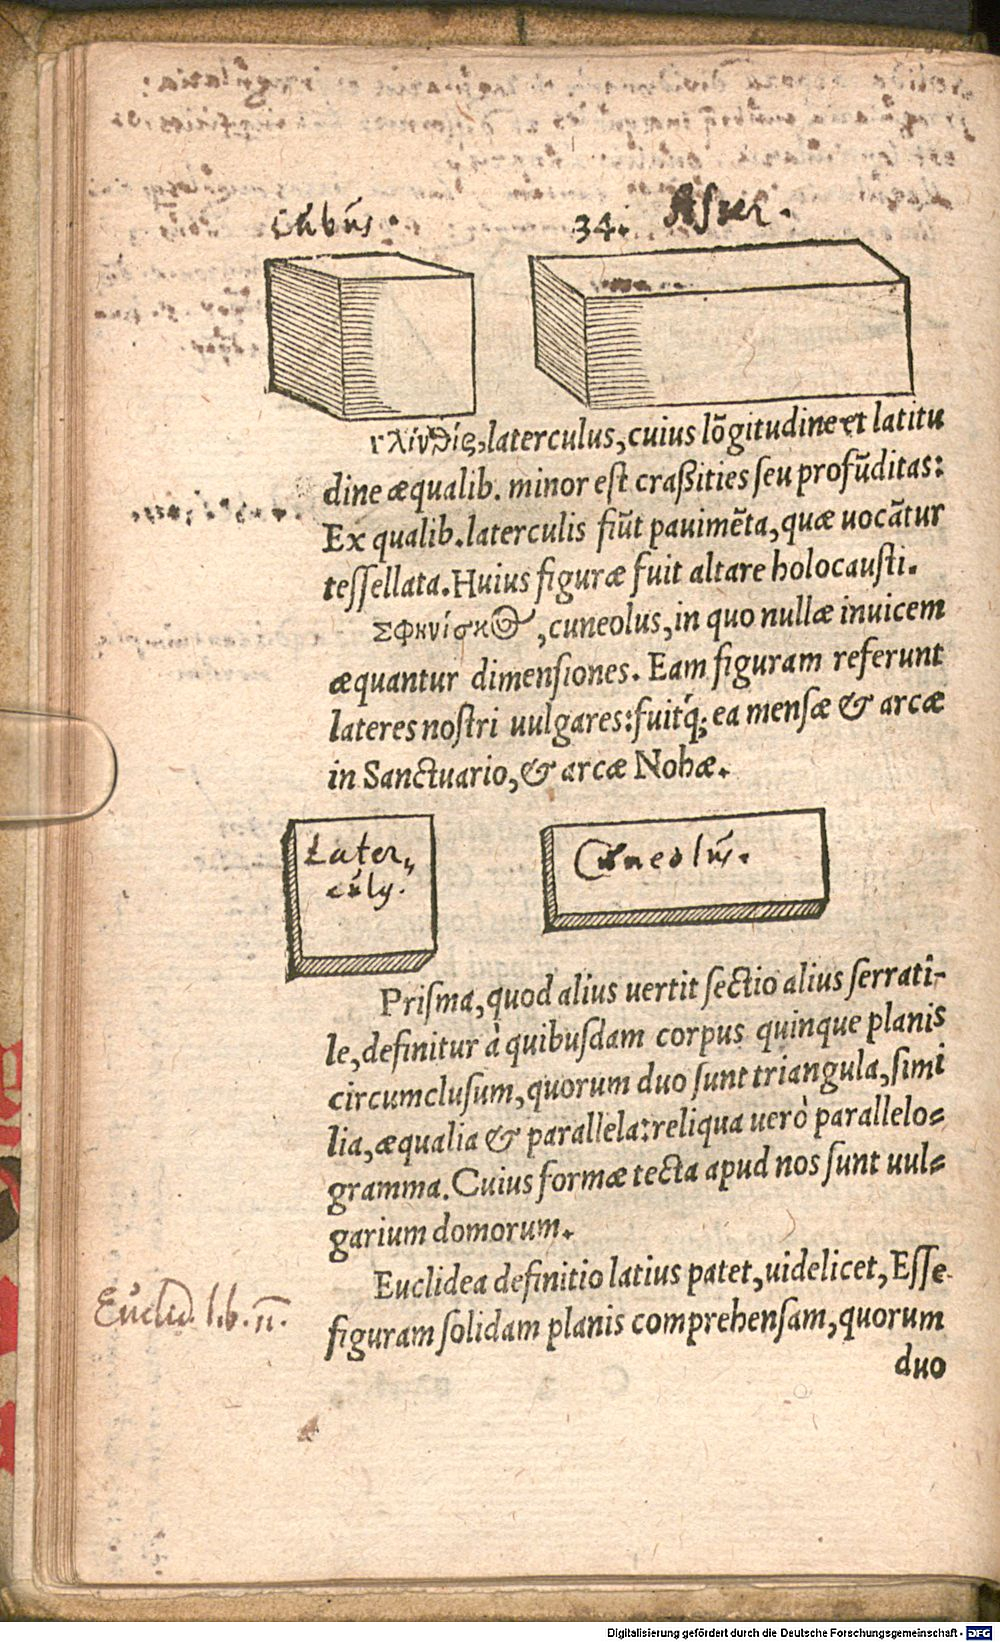 Cubus.
34. Asser.
πλινθίς, laterculus, cuius lõgitudine et latitu
dine æqualib. minor eſt craßities ſeu profũditas:
Ex qualib. laterculis fiũt pauimẽta, quæ uocãtur
teſſellata. Huius figuræ fuit altare holocauſti.
Σφηνίσκος, cuneolus, in quo nullæ inuicem
æquantur dimenſiones. Eam figuram referunt
lateres noſtri uulgares: fuitq́; ea menſæ & arcæ
in Sanctuario, & arcæ Nohæ.
Later„
culꝰ.
Cuneolus.
Priſma, quod alius uertit ſectio alius ſerrati-
le, definitur à quibuſdam corpus quinque planis
circumcluſum, quorum duo ſunt triangula, ſimi
lia, æqualia & parallela: reliqua uerò parallelo⸗
gramma. Cuius formæ tecta apud nos ſunt uul⸗
garium domorum.
Euclidea definitio latius patet, uidelicet, Eſſe
Euclid. lib. 11.
figuram ſolidam planis comprehenſam, quorum
duo
Digitalisierung gefördert durch die Deutsche Forschungsgemeinschaft - DFG